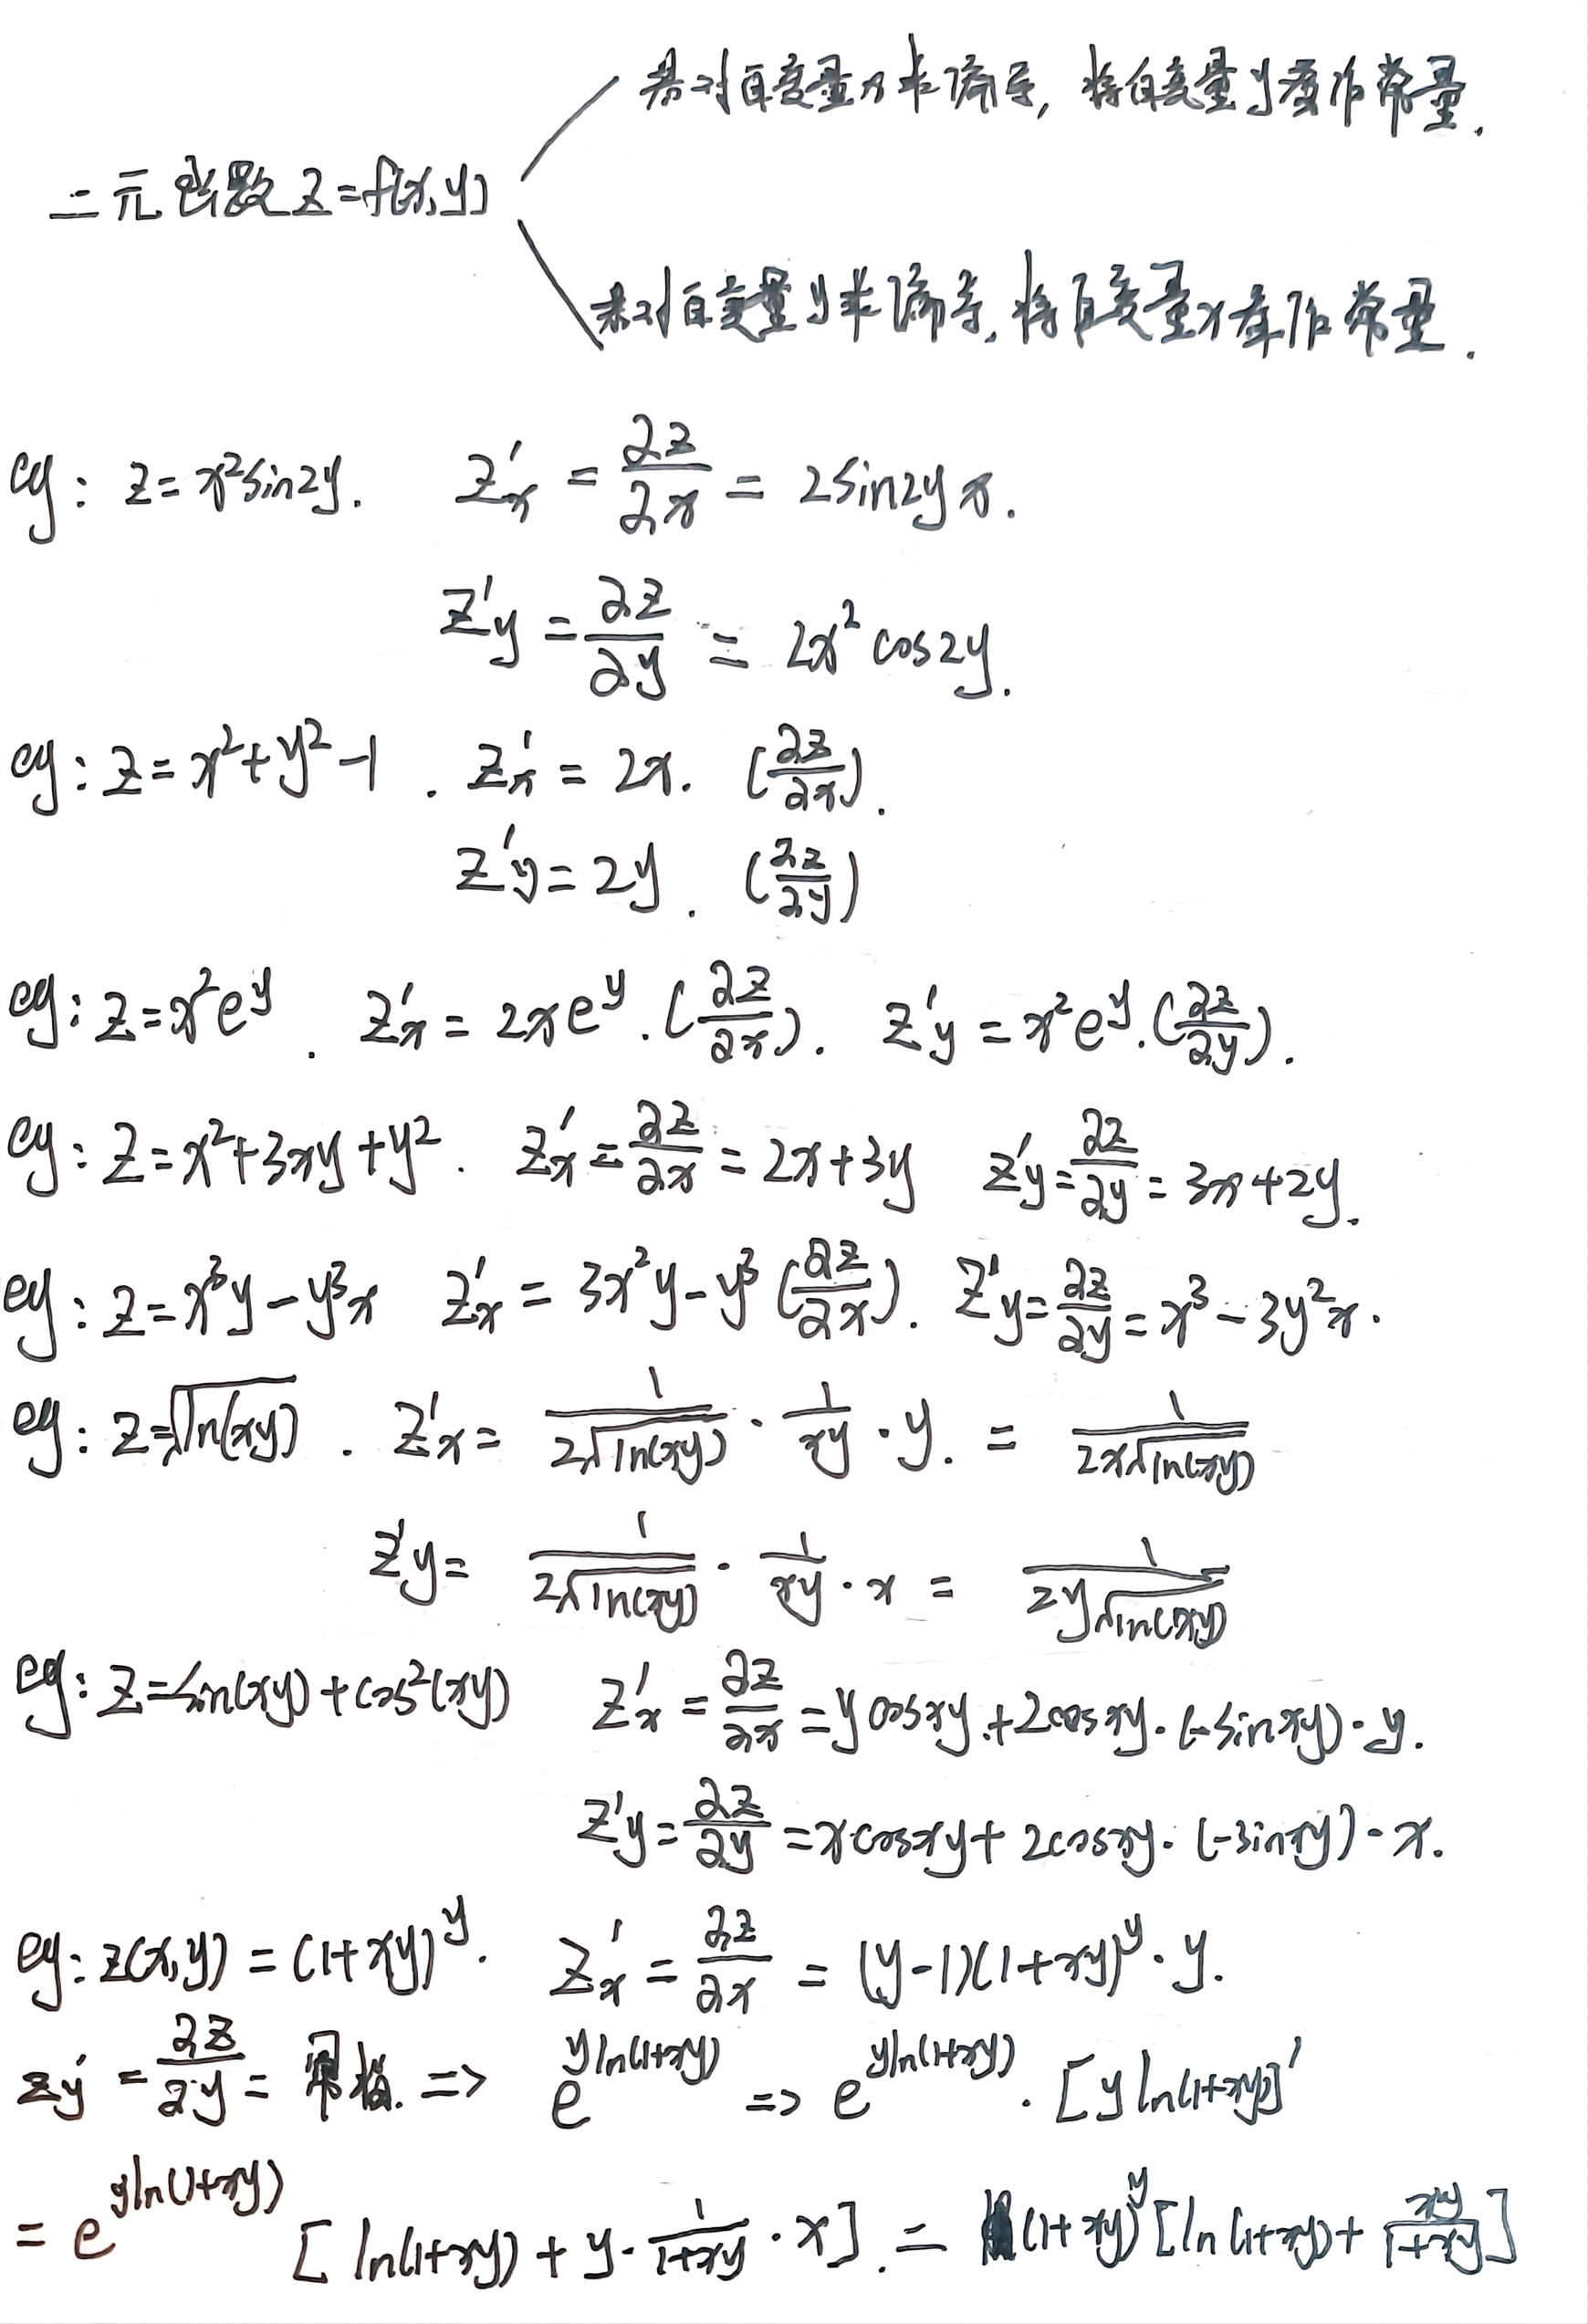 若对自变量x求偏导，将自变量y看作常量.
二元函数z=f(x,y)
若对自变量y求偏导，将自变量x看作常量.
eg: z=x²sin2y. z'x = ∂z/∂x = 2sin2y x.
z'y = ∂z/∂y = 2x² cos2y.
eg: z=x²+y²-1. z'x = 2x. (∂z/∂x).
z'y=2y. (∂z/∂y)
eg: z=x²e^y. z'x = 2xe^y. (∂z/∂x). z'y = x²e^y. (∂z/∂y).
eg: z=x²+3xy+y². z'x = ∂z/∂x = 2x+3y z'y = ∂z/∂y = 3x+2y.
eg: z=x³y-y³x z'x = 3x²y-y³ (∂z/∂x). z'y = ∂z/∂y = x³-3y²x.
eg: z=√ln(xy). z'x = 1/(2√ln(xy)) · 1/(xy) · y. = 1/(2x√ln(xy))
z'y = 1/(2√ln(xy)) · 1/(xy) · x = 1/(2y√ln(xy))
eg: z=sin(xy)+cos²(xy) z'x = ∂z/∂x = y cosxy+2cosxy·(-sinxy)·y.
z'y = ∂z/∂y = xcosxy+2cosxy·(-sinxy)·x.
eg: z(x,y) = (1+xy)^y. z'x = ∂z/∂x = (y-1)(1+xy)^y·y.
z'y = ∂z/∂y = 幂指. => e^(yln(1+xy)) => e^(yln(1+xy)) · [yln(1+xy)]'
= e^(yln(1+xy)) [ln(1+xy) + y·1/(1+xy)·x]. = (1+xy)^y [ln(1+xy)+xy/(1+xy)]